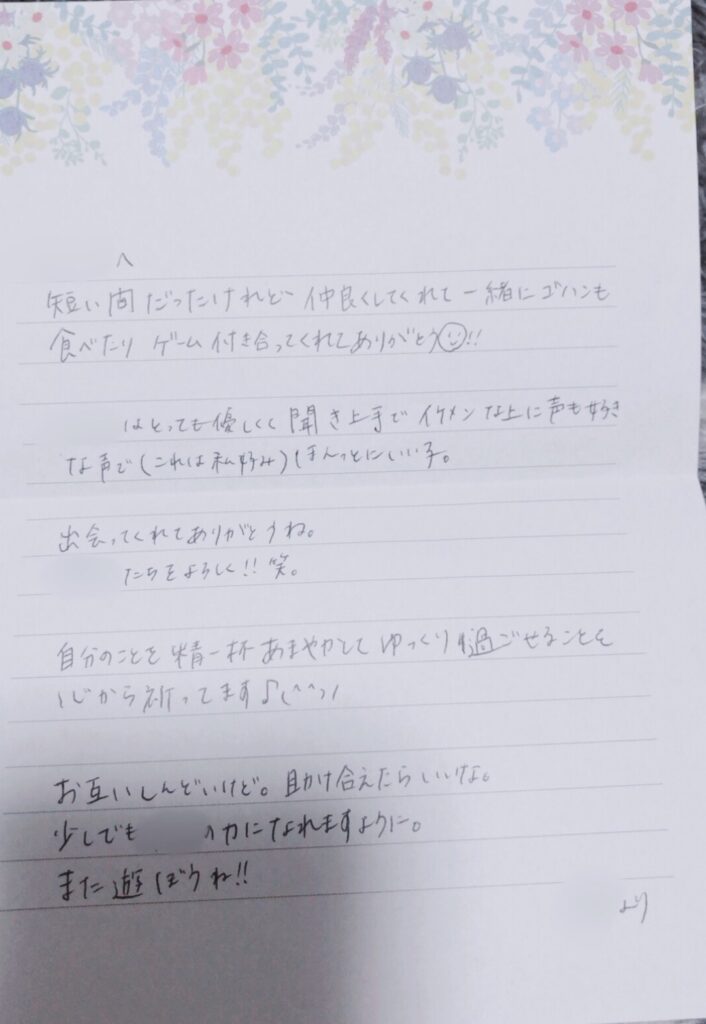 へ
短い間だったけれど仲良くしてくれて一緒にゴハンも
食べたりゲーム付き合ってくれてありがとう☺!!
はとっても優しくく聞き上手でイケメンな上に声も好き
な声で(これは私好み)ほんっとにいい子。
出会ってくれてありがとうね。
たちをよろしく!!笑。
自分のことを精一杯あまやかしてゆっくり過ごせることを
心から祈ってます♪(^^)/
お互いしんどいけど。助け合えたらいいな。
少しでも の力になれますように。
また遊ぼうね!!
より